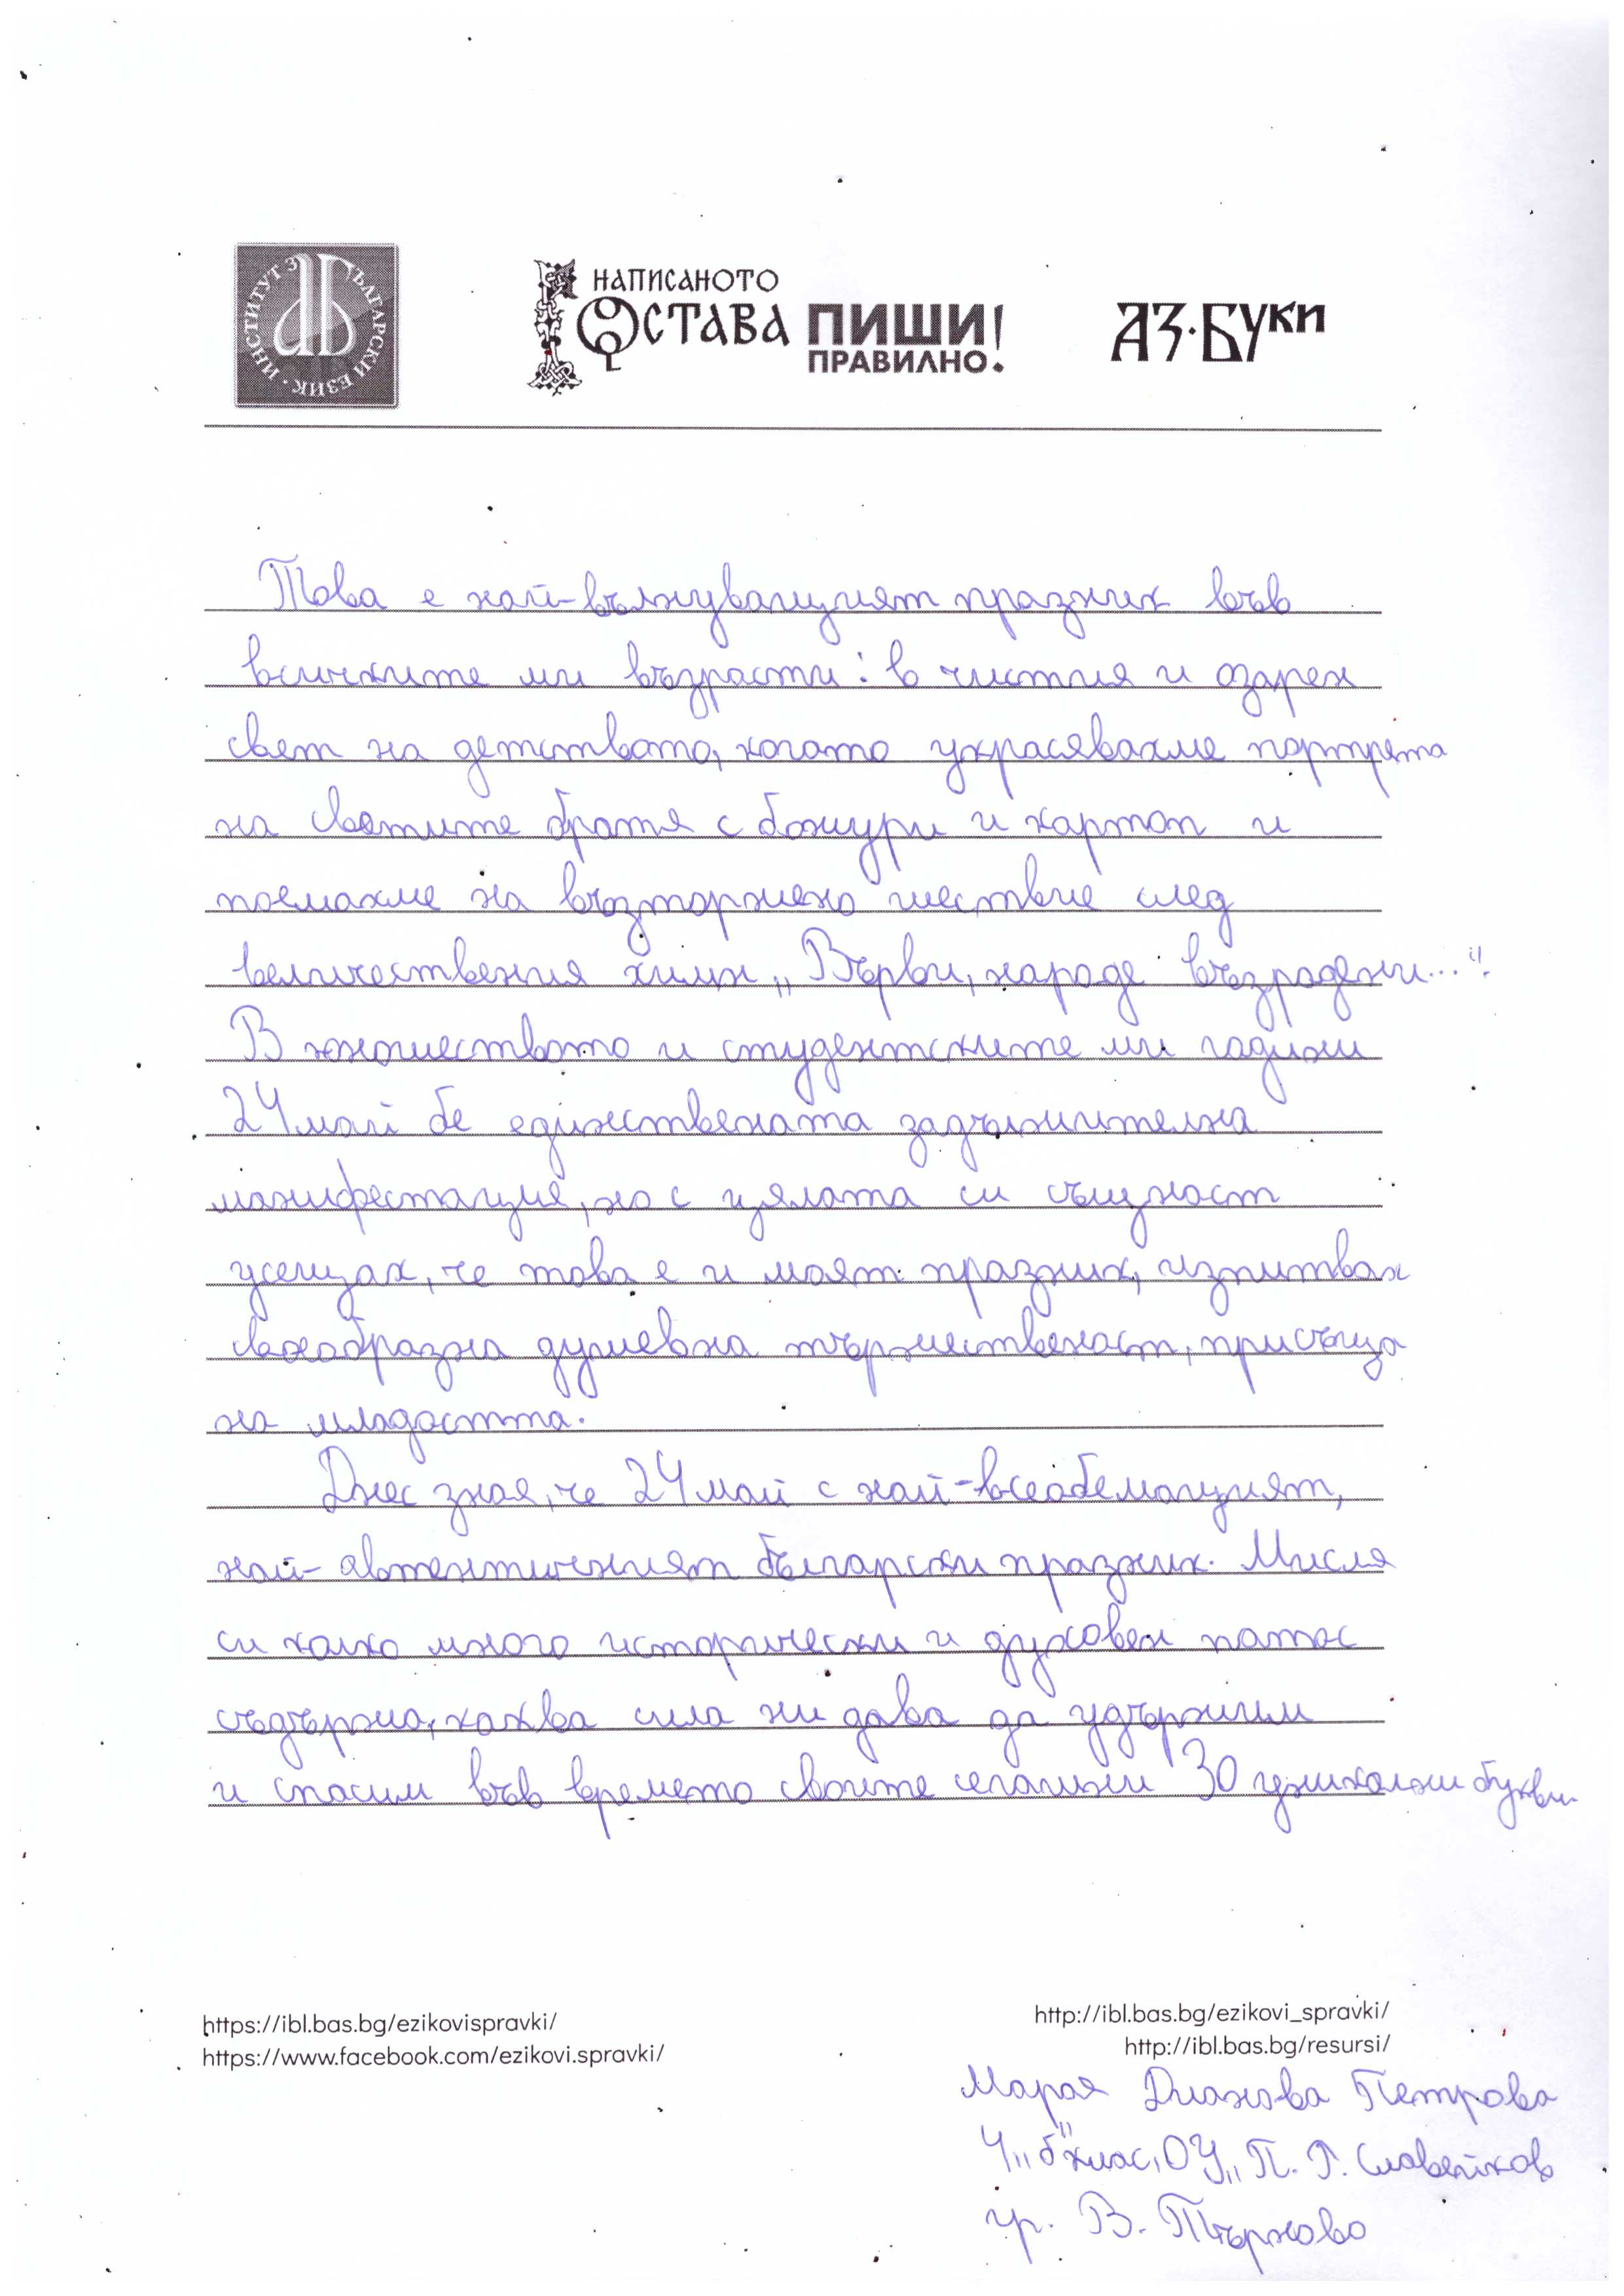 ИНСТИТУТ ЗА БЪЛГАРСКИ ЕЗИК
НАПИСАНОТО
ОСТАВА ПИШИ!
ПРАВИЛНО.
АЗ·БУКИ
Това е най-вълнуващият празник във
всичките ми възрасти: в чистия и озарен
свет на детството, когато украсявахме портрета
на Светите братя с божури и картон и
поемахме на възторжено шествие след
величествения химн „Върви, народе възрадени..."!
В юношеството и студентските ми години
24 май бе единствената задължителна
манифестация, но с цялата си същност
усещах, че това е и моят празник, изпитвах
своеобразна душевна тържественост, присъща
на младостта.
Днес зная, че 24 май с най-всеобемащият,
най-автентичният български празник. Мисля
си колко много исторически и духовен патос
съдържа, каква сила ни дава да удържим
и спасим във времето своите сегашни 30 уникални букви.
https://ibl.bas.bg/ezikovispravki/
https://www.facebook.com/ezikovi.spravki/
http://ibl.bas.bg/ezikovi_spravki/
http://ibl.bas.bg/resursi/
Марая Диа­нова Петрова
4 „б" клас, ОУ „П. Р. Славейков
гр. В. Търново